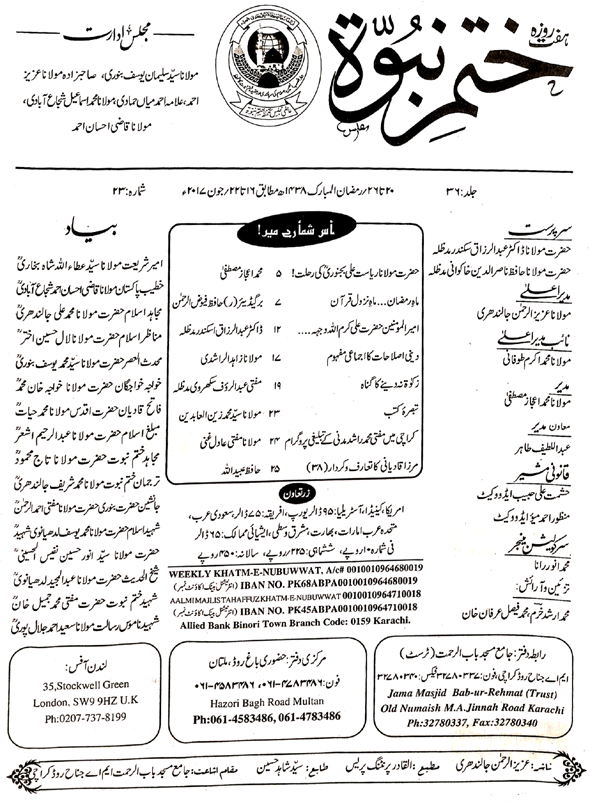 ہفت روزہ
ختم نبوۃ
مجلس ادارت
مولانا سید سلیمان یوسف بنوری، صاحبزادہ مولانا عزیز
احمد، علامہ احمد میاں حمادی، مولانا محمد اسماعیل شجاع آبادی،
مولانا قاضی احسان احمد
جلد: ۳۶
۲۰ تا ۲۶ رمضان المبارک ۱۴۳۸ھ مطابق ۱۶ تا ۲۲ جون ۲۰۱۷ء
شمارہ: ۲۳
سرپرست
حضرت مولانا ڈاکٹر عبدالرزاق سکندر مدظلہ
حضرت مولانا حافظ ناصر الدین خاکوانی مدظلہ
مدیر اعلیٰ
مولانا عزیز الرحمٰن جالندھری
نائب مدیر اعلیٰ
مولانا محمد اکرم طوفانی
مدیر
مولانا محمد اعجاز مصطفیٰ
معاون مدیر
عبداللطیف طاہر
قانونی مشیر
حشمت علی حبیب ایڈووکیٹ
منظور احمد میؤ ایڈووکیٹ
سرکولیشن منیجر
محمد انور رانا
تزئین و آرائش:
محمد ارشد خرم، محمد فیصل عرفان خان
اس شمارے میں!
حضرت مولانا ریاست علی بجنوریؒ کی رحلت! ۵ محمد اعجاز مصطفیٰ
ماہ رمضان... ماہ نزول قرآن ۷ بریگیڈیئر (ر) حافظ فیوض الرحمٰن
امیر المؤمنین حضرت علی کرم اللہ وجہہ.... ۱۲ ڈاکٹر عبدالرزاق اسکندر مدظلہ
دینی اصلاحات کا اجماعی مفہوم ۱۷ مولانا زاہد الراشدی
زکوٰۃ نہ دینے کا گناہ ۱۹ مفتی عبدالرؤف سکھروی مدظلہ
تبصرۂ کتب ۲۳ مولانا سید محمد زین العابدین
کراچی میں مفتی محمد راشد مدنی کے تبلیغی پروگرام ۲۴ مولانا مفتی عادل غنی
مرزا قادیانی کا تعارف و کردار (۳۸) ۲۵ حافظ عبیداللہ
زر تعاون
امریکا، کینیڈا، آسٹریلیا: ۹۵ ڈالر یورپ، افریقہ: ۷۵ ڈالر، سعودی عرب،
متحدہ عرب امارات، بھارت، مشرق وسطیٰ، ایشیائی ممالک: ۶۵ ڈالر
فی شمارہ ۱۰ روپے، ششماہی: ۲۲۵ روپے، سالانہ: ۴۵۰ روپے
WEEKLY KHATM-E-NUBUWWAT, A/c# 0010010964680019
IBAN NO. PK68ABPA0010010964680019 (انٹرنیشنل بینک اکاؤنٹ نمبر)
AALMI MAJLIS TAHAFFUZ KHATM-E-NUBUWWAT 0010010964710018
IBAN NO. PK45ABPA0010010964710018 (انٹرنیشنل بینک اکاؤنٹ نمبر)
Allied Bank Binori Town Branch Code: 0159 Karachi.
بیاد
امیر شریعت مولانا سید عطاء اللہ شاہ بخاریؒ
خطیب پاکستان مولانا قاضی احسان احمد شجاع آبادیؒ
مجاہد اسلام حضرت مولانا محمد علی جالندھریؒ
مناظر اسلام حضرت مولانا لال حسین اخترؒ
محدث العصر حضرت مولانا سید محمد یوسف بنوریؒ
خواجہ خواجگان حضرت مولانا خواجہ خان محمدؒ
فاتح قادیان حضرت اقدس مولانا محمد حیاتؒ
مبلغ اسلام حضرت مولانا عبدالرحیم اشعرؒ
مجاہد ختم نبوت حضرت مولانا تاج محمودؒ
ترجمان ختم نبوت حضرت مولانا محمد شریف جالندھریؒ
جانشین حضرت بنوری حضرت مولانا مفتی احمد الرحمٰنؒ
شہید اسلام حضرت مولانا محمد یوسف لدھیانوی شہیدؒ
حضرت مولانا سید انور حسین نفیس الحسینیؒ
شیخ الحدیث حضرت مولانا عبدالمجید لدھیانویؒ
شہید ختم نبوت حضرت مفتی محمد جمیل خانؒ
شہید ناموس رسالت مولانا سعید احمد جلال پوریؒ
رابطہ دفتر: جامع مسجد باب الرحمت (ٹرسٹ)
ایم اے جناح روڈ کراچی، فون: ۳۲۷۸۰۳۳۷ فیکس: ۳۲۷۸۰۳۴۰
Jama Masjid Bab-ur-Rehmat (Trust)
Old Numaish M.A.Jinnah Road Karachi
Ph:32780337, Fax:32780340
مرکزی دفتر: حضوری باغ روڈ، ملتان
فون: ۰۶۱-۴۷۸۳۴۸۶، ۰۶۱-۴۵۸۳۴۸۶
Hazori Bagh Road Multan
Ph:061-4583486, 061-4783486
لندن آفس:
35,Stockwell Green
London, SW9 9HZ U.K
Ph:0207-737-8199
ناشر: عزیز الرحمٰن جالندھری مطبع: القادر پرنٹنگ پریس طابع: سید شاہد حسین مقام اشاعت: جامع مسجد باب الرحمت ایم اے جناح روڈ کراچی